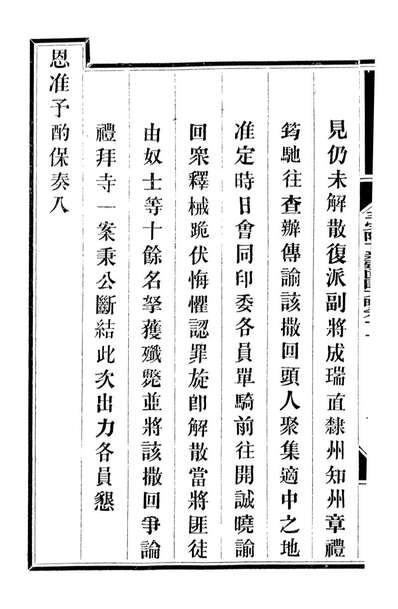 見仍未解散復派副將成瑞直隸州知州章禮
筠馳往查辦傳諭該撒回頭人聚集適中之地
准定時日會同印委各員單騎前往開誠曉諭
回衆釋械跪伏悔懼認罪旋卽解散當將匪徒
由奴士等十餘名拏獲殲斃並將該撒回爭論
禮拜寺一案秉公斷結此次出力各員懇
恩准予酌保奏入